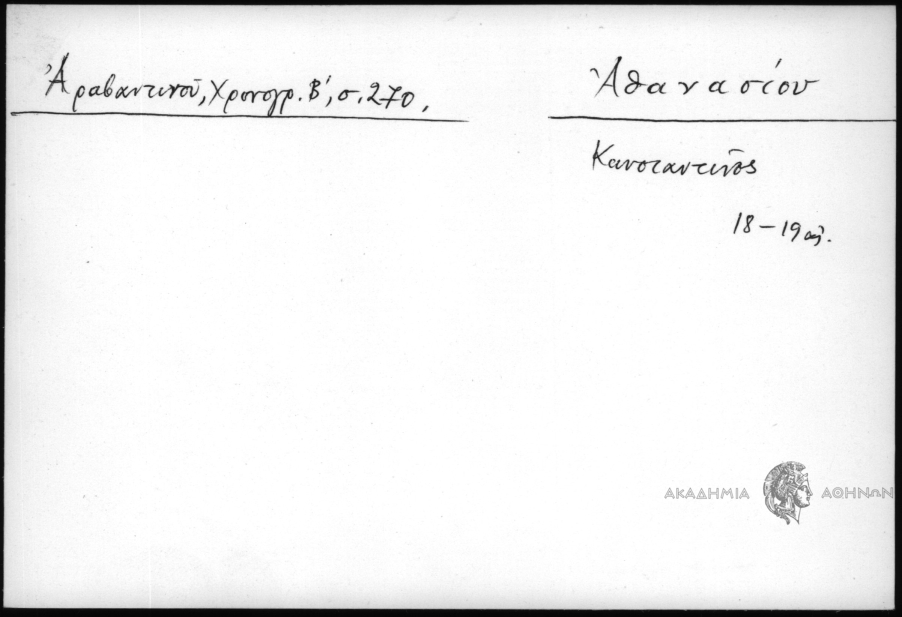 Ἀραβαντινοῦ, Χρονογρ. Β΄, σ. 270.
Ἀθανασίου
Κωνσταντῖνος
18 – 19 αἰ.
ΑΚΑΔΗΜΙΑ ΑΘΗΝΩΝ